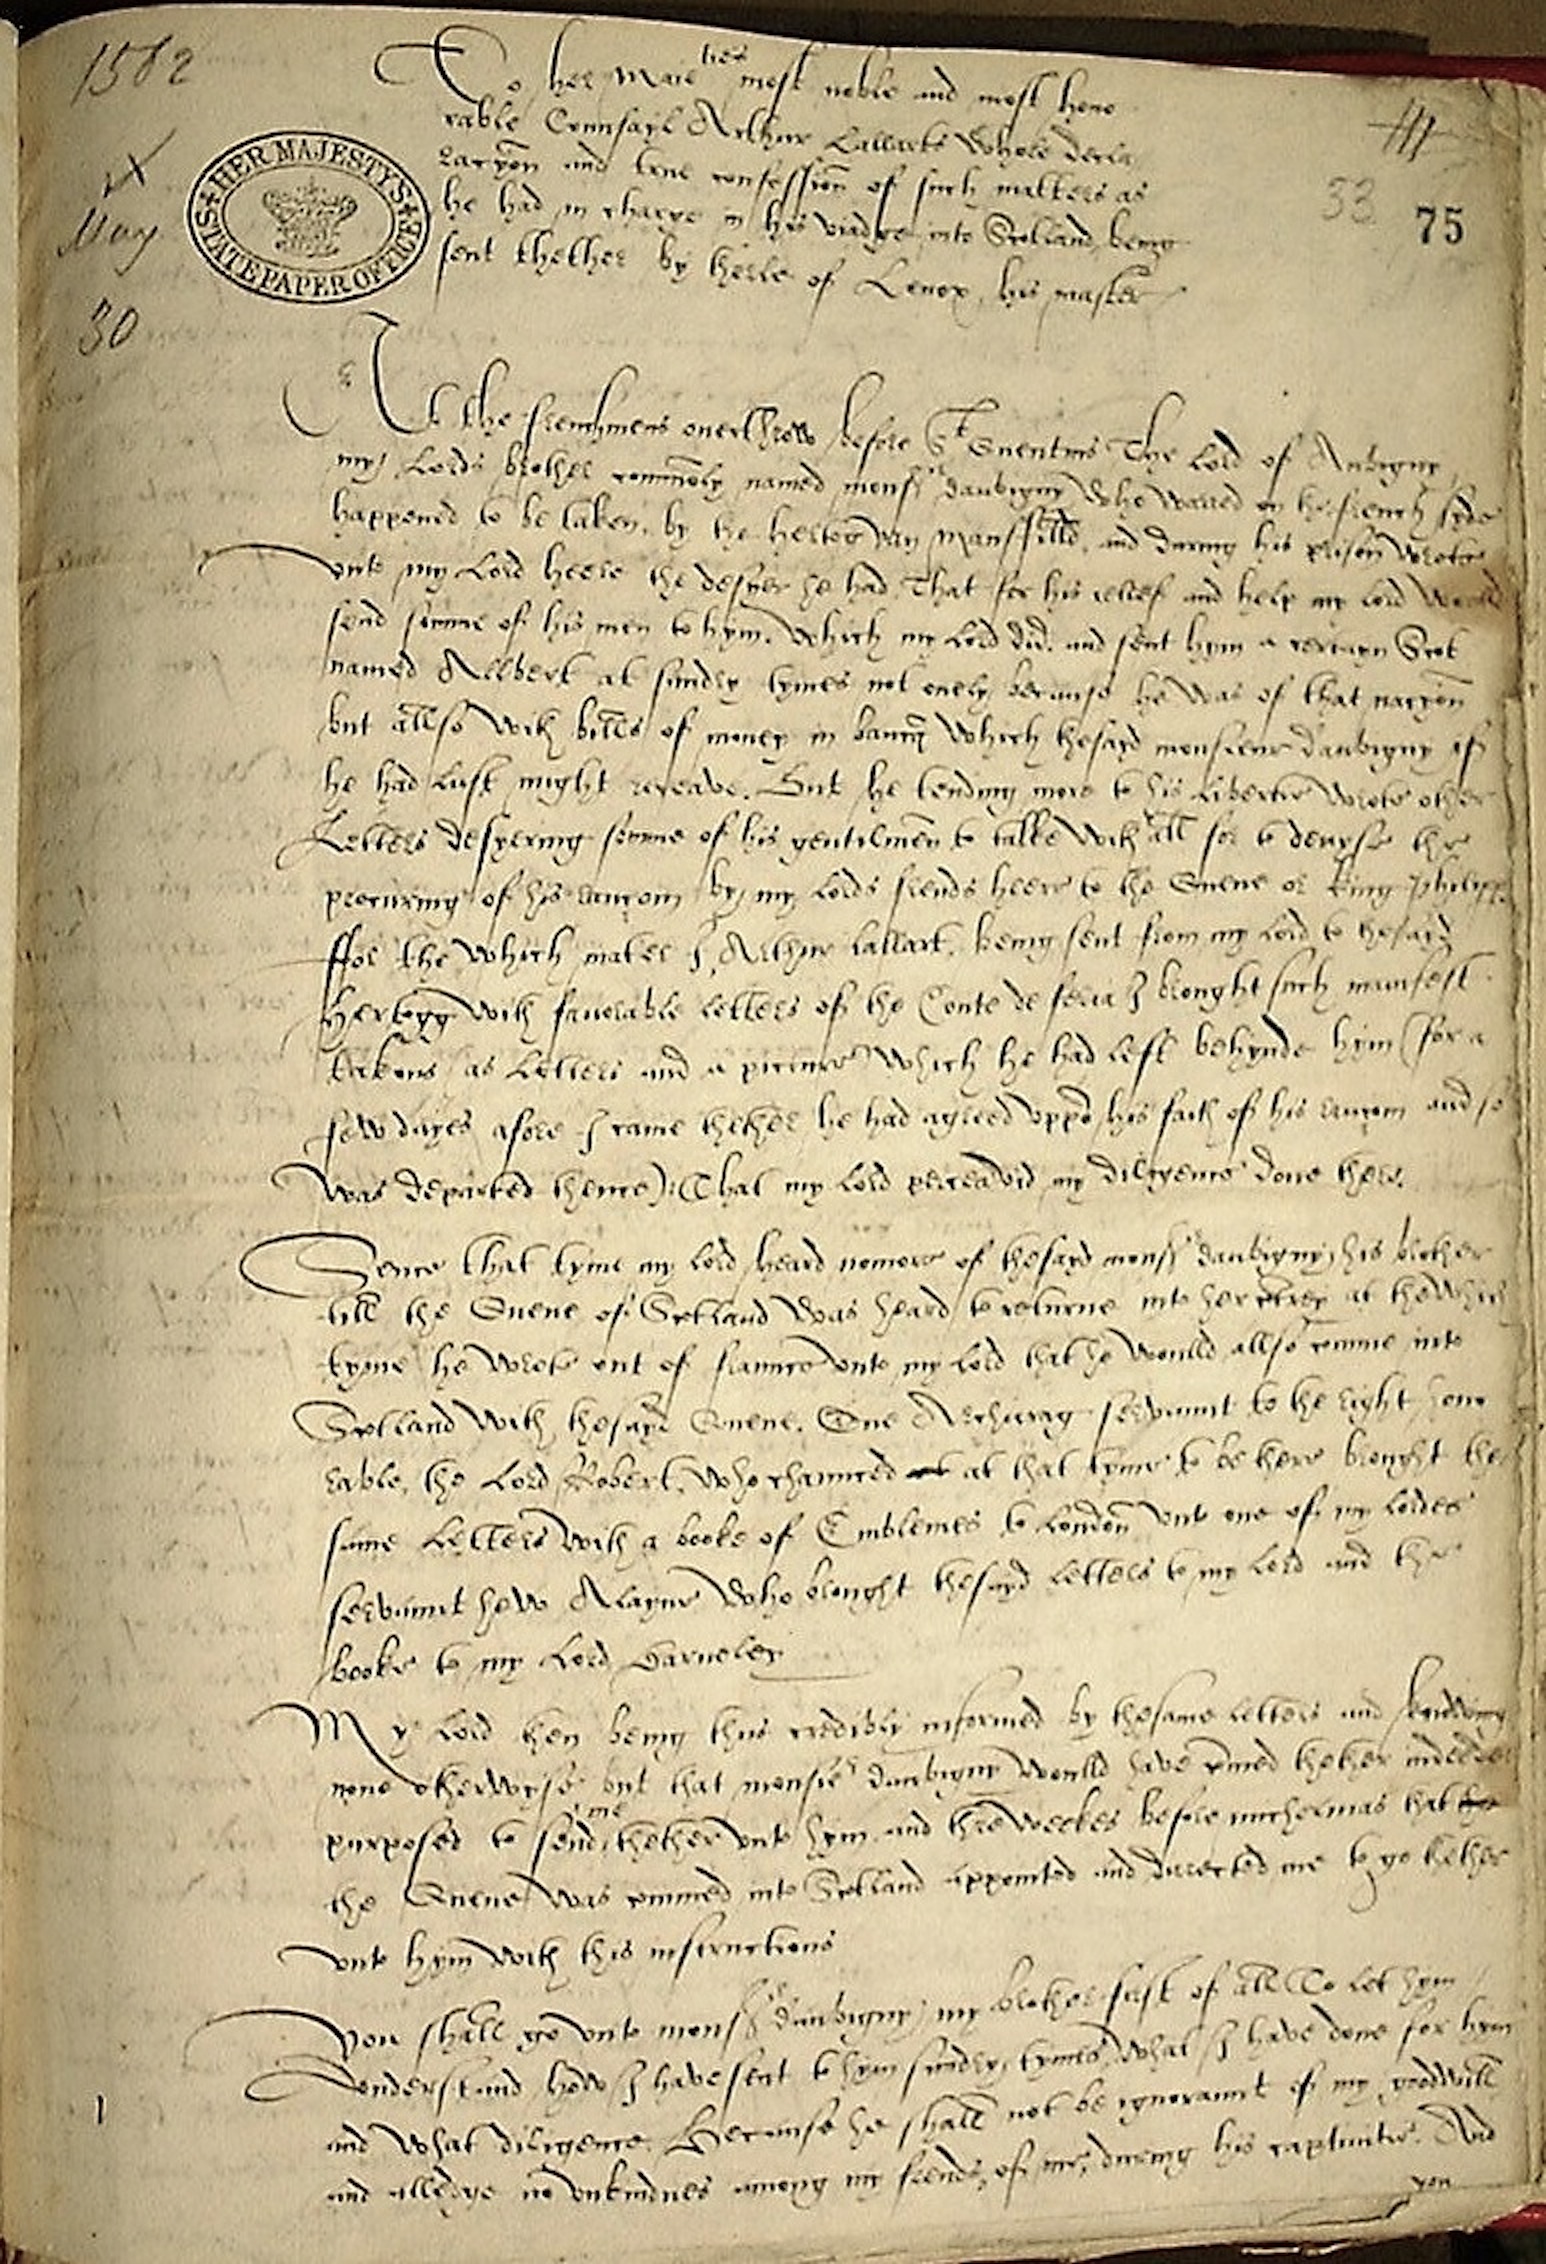 1562
X
May
30
HER MAJESTY'S
STATE PAPER OFFICE
33
75
To her Maie ties most noble and most hono
rable Counsayl Arthur Lallarts whole decla
racyon and true confession of such matters as
he had in charge in his viadge into Scotland, being
sent thether by therle of Lenox, his master
At the frenchmens overthrow before St Quentins The Lord of Aubigny
my Lords brother commonly named monsr daubigny who warred on the french syde
happened to be taken, by the hertog van Mansfilld, and during his prison wrote
unto my Lord heere the desyer he had That for his relief and help my Lord would
send somme of his men to hym. Which my Lord did. and sent hym a certayn Scot
named Allbert at sundry tymes not onely because he was of that nacyon
but allso with bills of money in banq which thesayd monsieur daubigny if
he had lust might receave. But he tending more to his Libertie wrote other
Letters desyering somme of his gentilmen to talke withall for to devyse the
procuring of his raunçom by my Lords frends heere to the Quene or King Philipp.
Ffor the which mater I, Arthur Lallart. being sent from my Lord to thesayd
Hertogg with favorable Letters of the Conte de feria I brought such manifest
tokens as Letters and a picture which he had left behynde hym (for a
few dayes afore I came thether he had agreed uppon his faith of his raunçom and so
was departed thence) That my Lord perceavid my diligence done there.
Sence that tyme my Lord heard nomore of thesayd monsr daubigny his brother
till the Quene of Scotland was heard to returne into her contrey at the which
tyme he wrote out of fraunce unto my Lord that he woulld allso comme into
Scotland with thesayd Quene. One Archirag servaunt to the right hono
rable, the Lord Robert, who chaunced at that tyme to be there brought the
same Letters with a booke of Emblemes to London unto one of my Lordes
servaunt hew Alayne who brought thesayd Letters to my Lord and the
booke to my Lord Darneley
My Lord then being thus credibly informed by thesame Letters and knowing
none otherwyse but that monsier daubigny woulld have comed thether indeede
purposed to send me thether unto hym. and thre weekes before michermas that
the Quene was commed into Scotland appointed and directed me to go thether
unto hym with this instructions
You shall go unto monsr daubigny my brother first of all To let hym
understand how I have sent to hym sundry tymes, what I have done for hym
1
and what diligence. Because he shall not be ignoraunt of my goodwill
and alledge no unkindnes among my frends, of me, during his captivitie. And
you